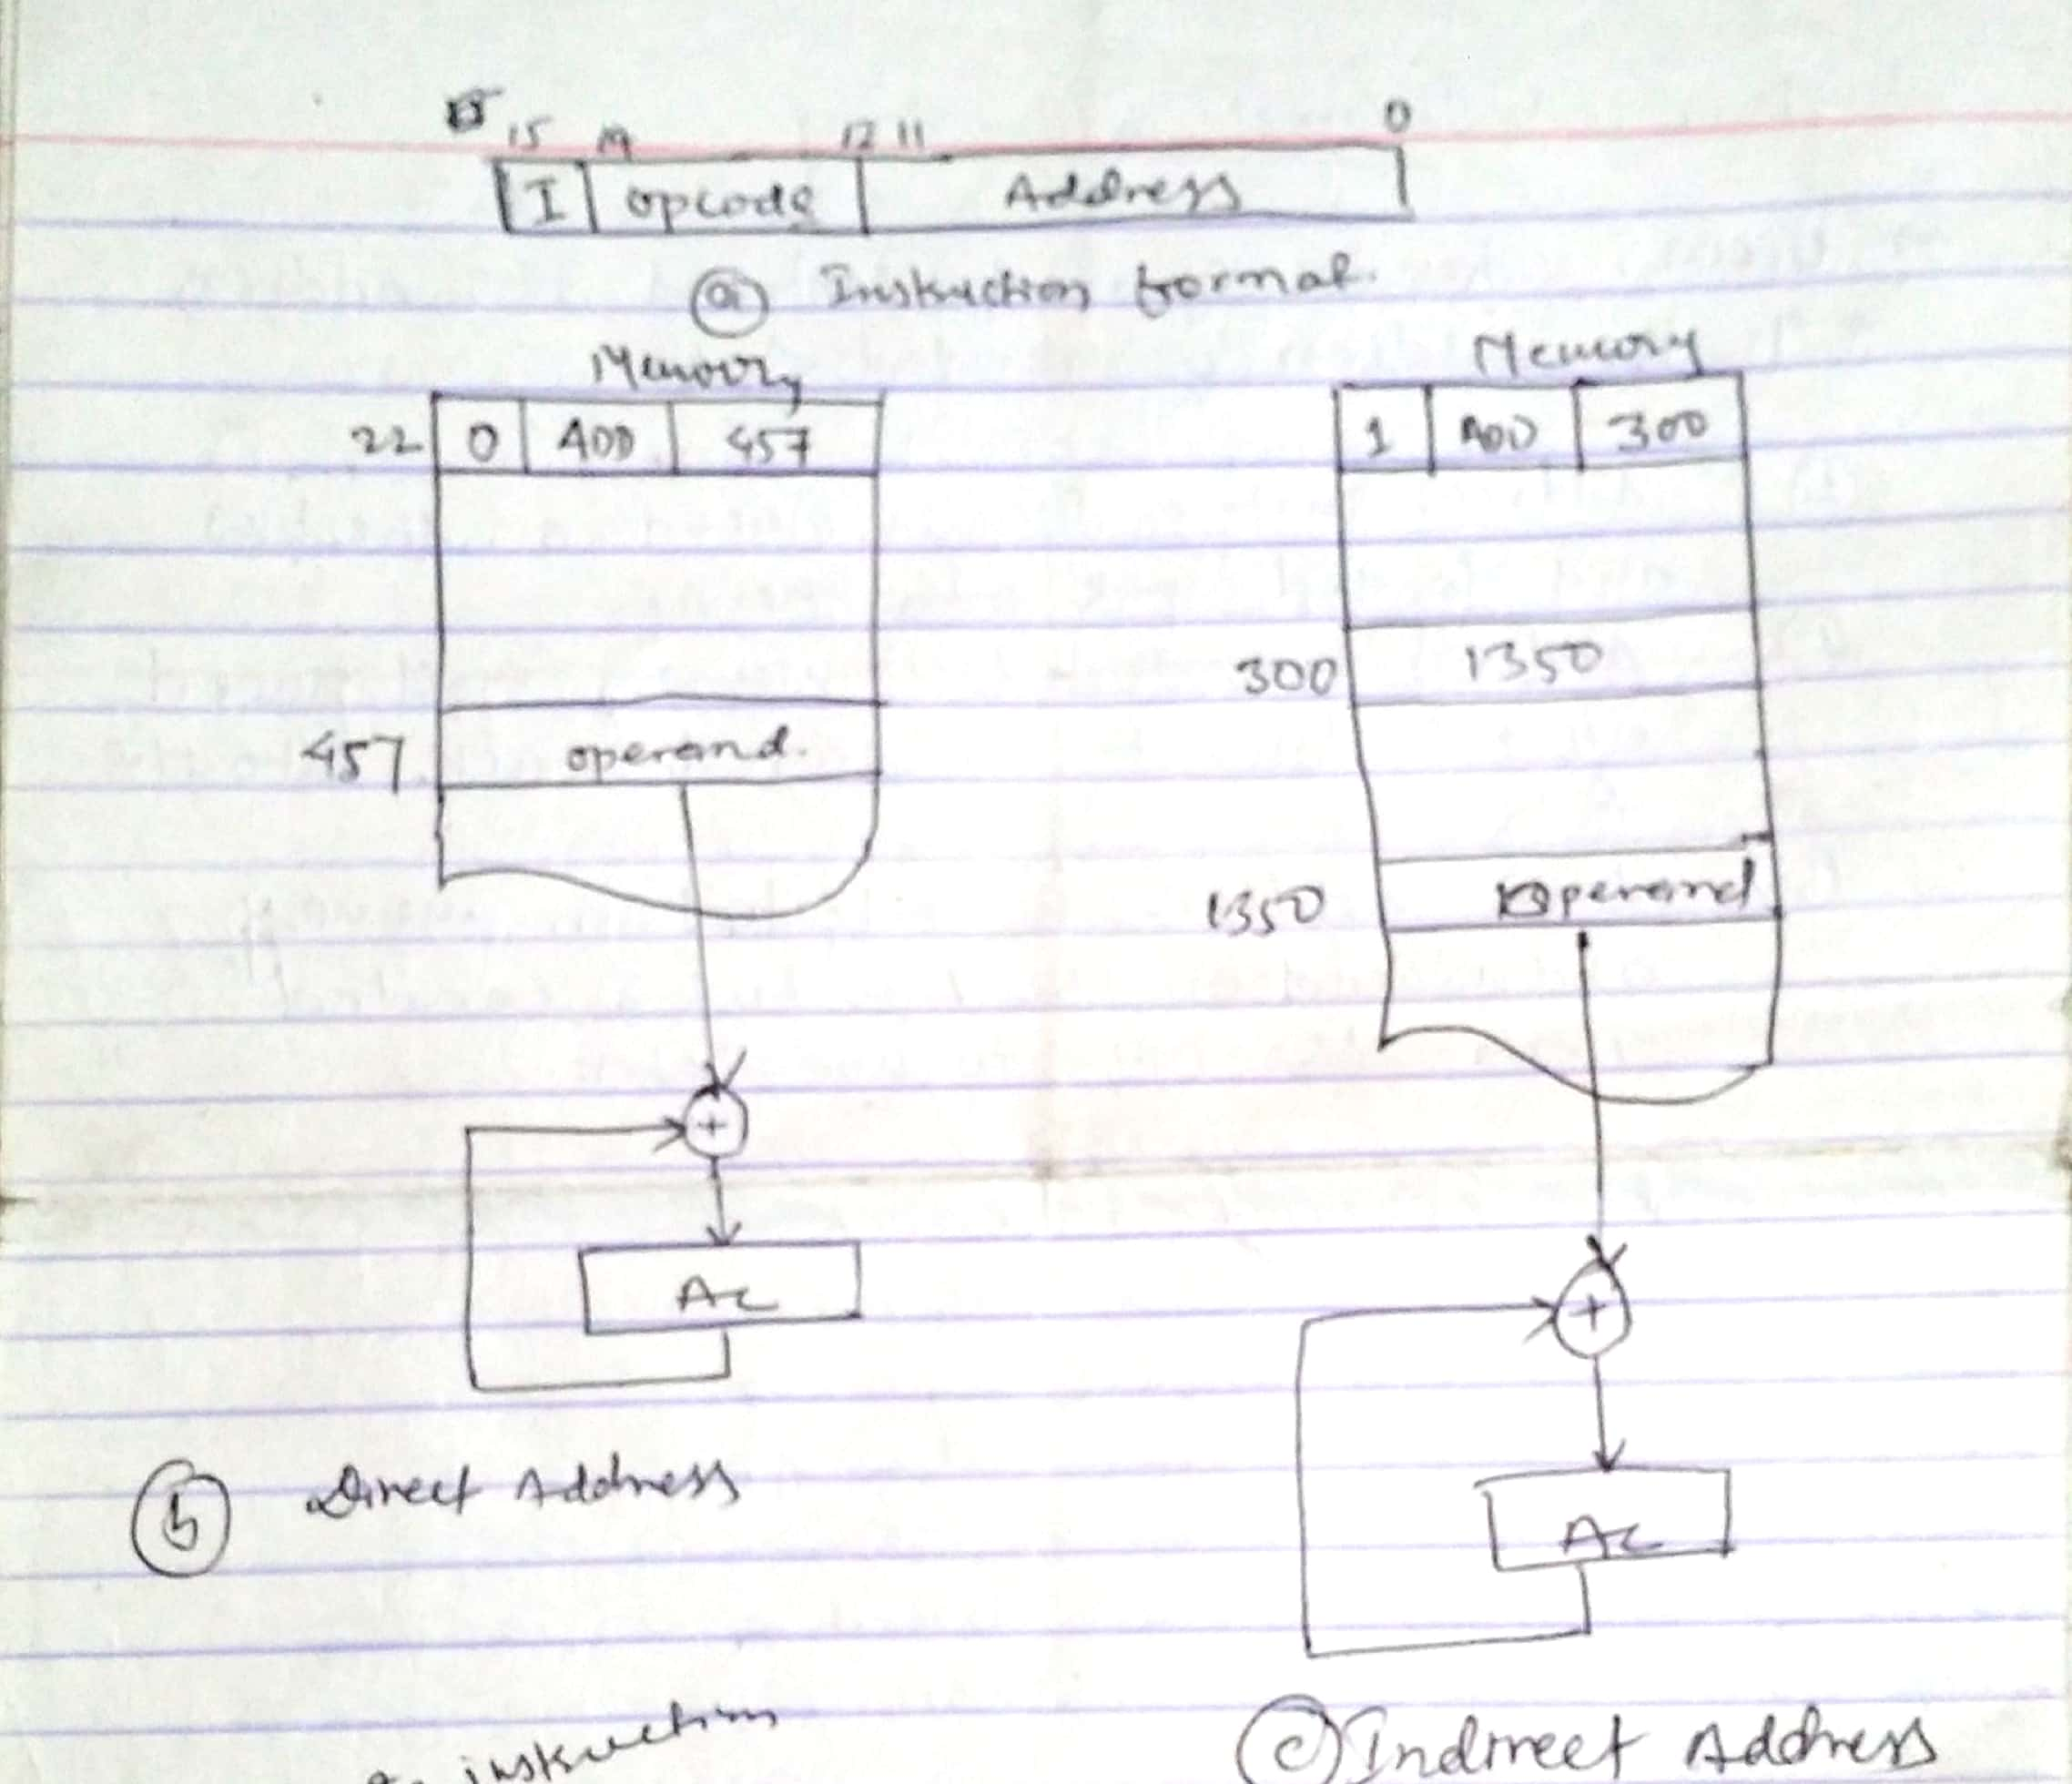 15 14 12 11 0
I opcode Address
a Instruction format.
Memory
22 0 ADD 457
457 operand.
+
AC
b Direct Address
Memory
1 ADD 300
300 1350
1350 operand
+
AC
c Indirect Address
instruction